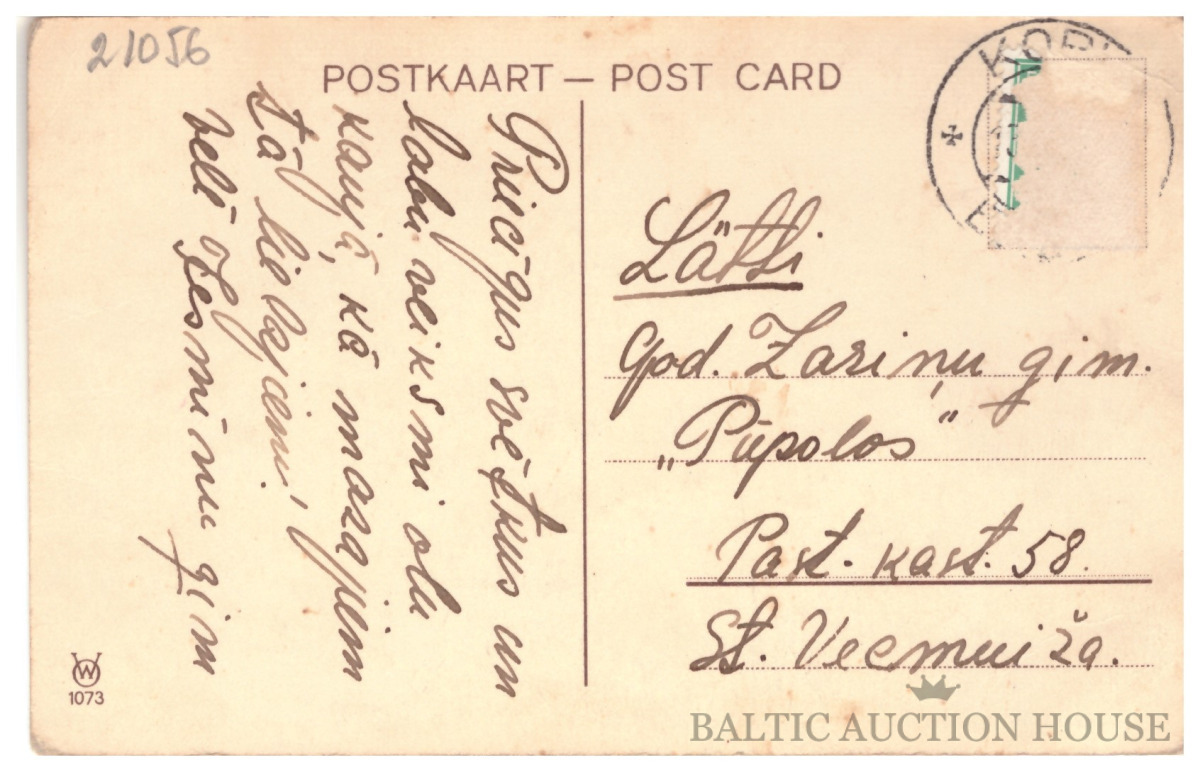 21056
POSTKAART — POST CARD
Priecīgus svētkus un
labu veiksmi olu
kaujā, kā mazajiem
tā lielajiem!
vēlī Jesmiņu ģim
Lätti
God. Zariņu ģim.
„Pūpolos"
Past. kast. 58.
St. Vecmuiža.
W
1073
BALTIC AUCTION HOUSE